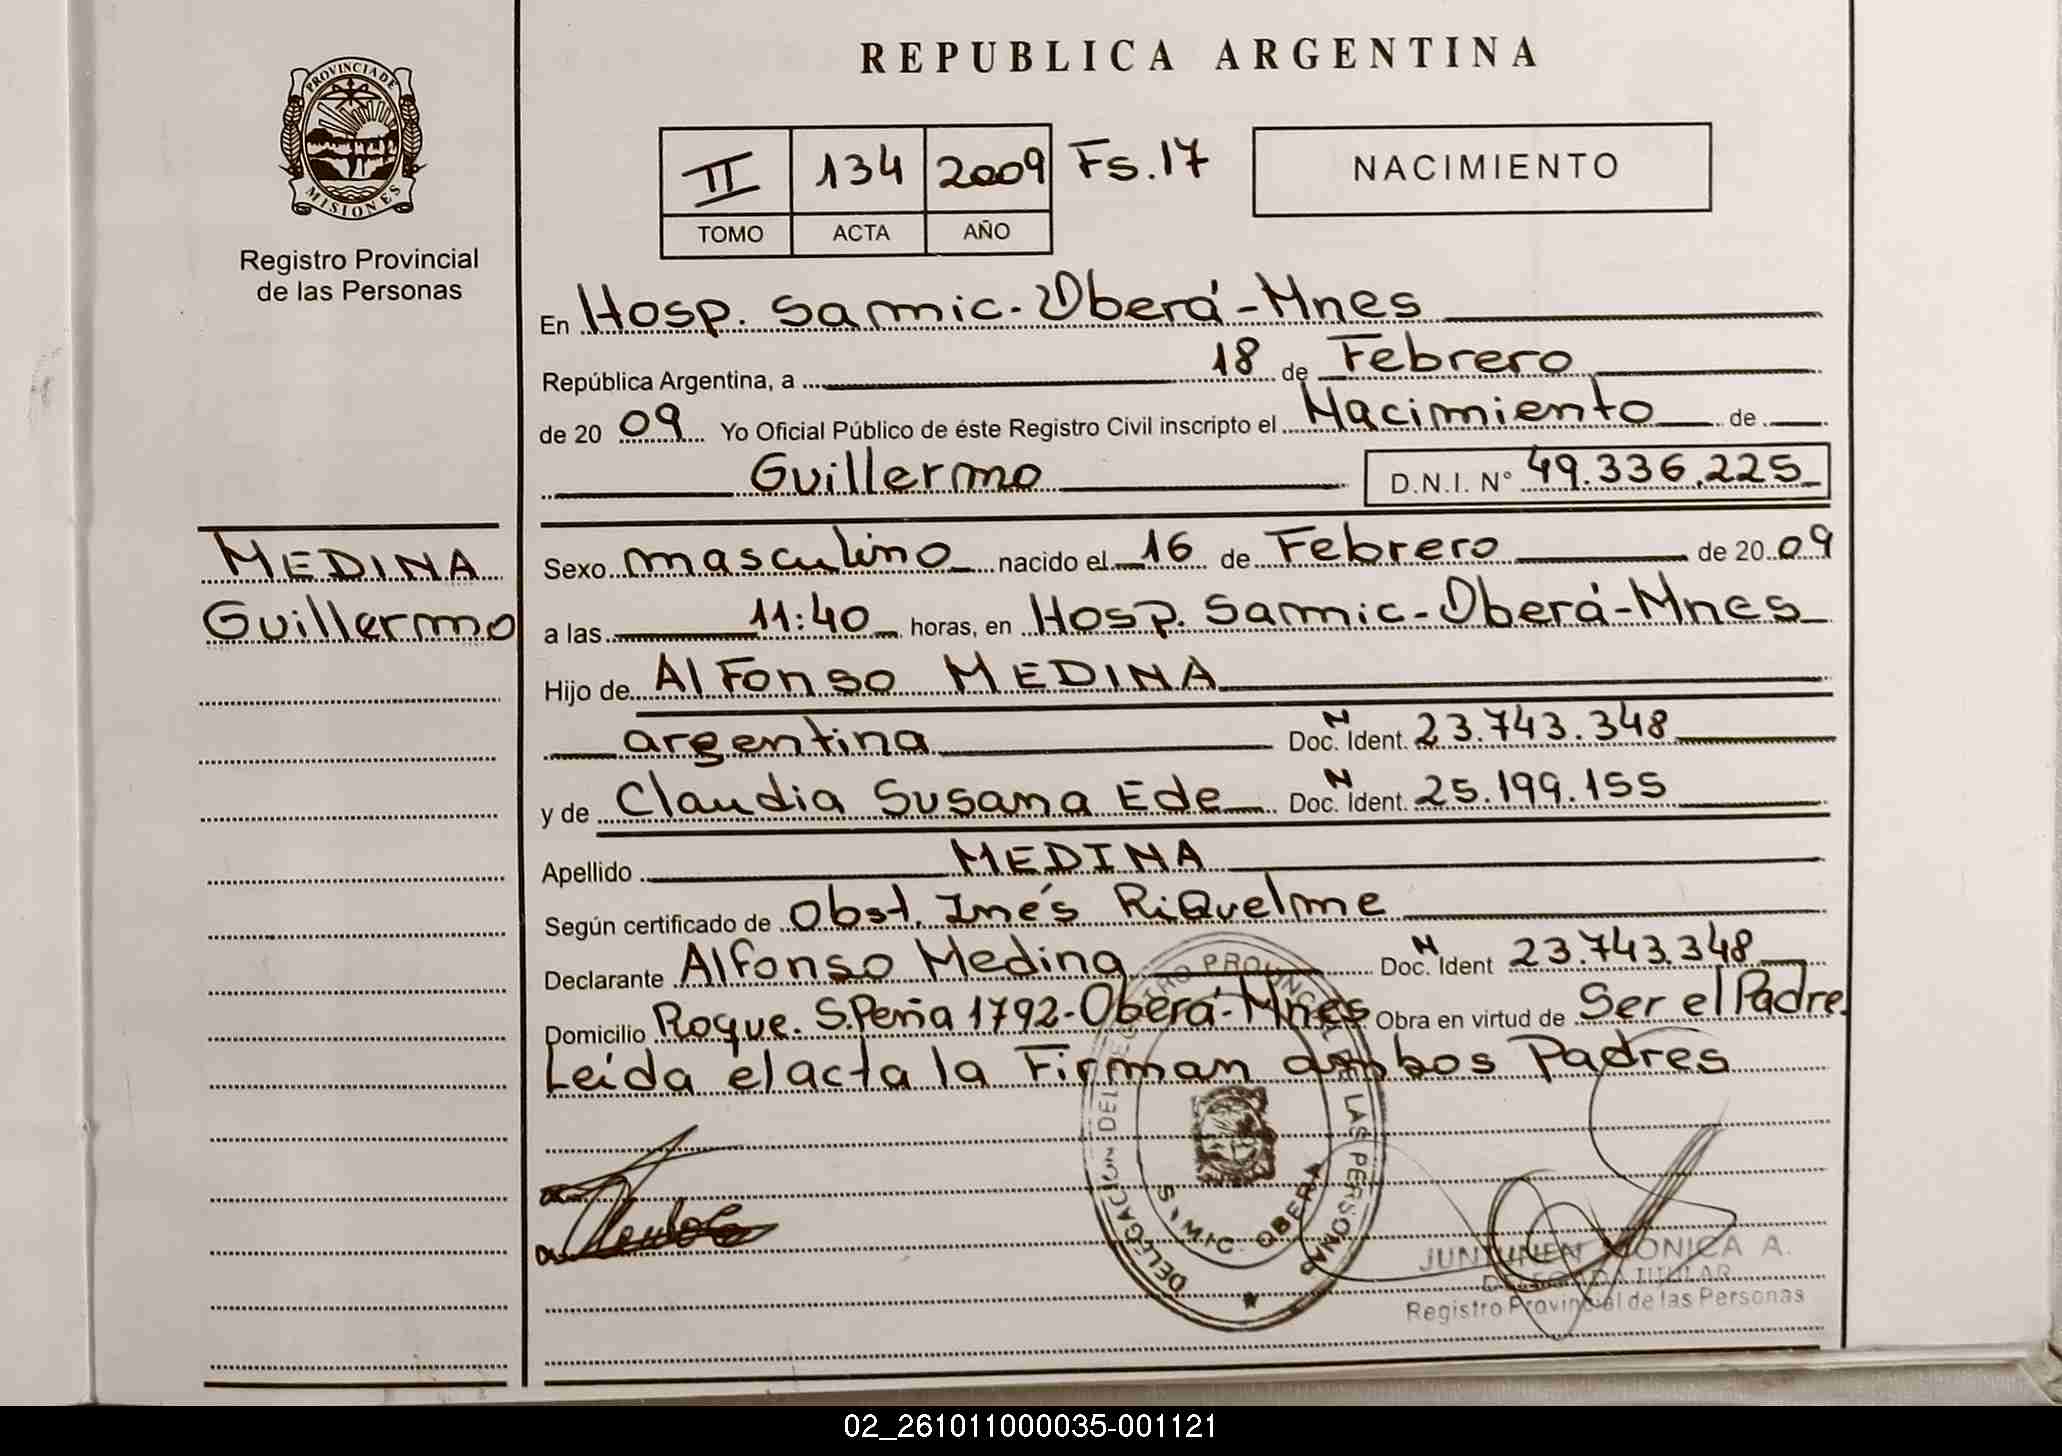 PROVINCIA DE
MISIONES
Registro Provincial
de las Personas
MEDINA
Guillermo
REPUBLICA ARGENTINA
II 134 2009 Fs.17
TOMO ACTA AÑO
NACIMIENTO
En Hosp. Samic-Oberá-Mnes
República Argentina, a 18 de Febrero
de 2009 Yo Oficial Público de éste Registro Civil inscripto el Nacimiento de
Guillermo D.N.I. N° 49.336.225
Sexo masculino nacido el 16 de Febrero de 2009
a las 11:40 horas, en Hosp. Samic-Oberá-Mnes
Hijo de Alfonso MEDINA
argentina Doc. N Ident. 23.743.348
y de Claudia Susana Ede Doc. N Ident. 25.199.155
Apellido MEDINA
Según certificado de Obst. Inés Riquelme
Declarante Alfonso Medina Doc. N Ident 23.743.348
Domicilio Roque. S.Peña 1792-Oberá-Mnes Obra en virtud de Ser el Padre.
Leída el acta la Firman ambos Padres
DELEGACION DEL REGISTRO PROVINCIAL DE LAS PERSONAS
SAMIC OBERA
JUNTUNEN MONICA A.
DELEGADA TITULAR
Registro Provincial de las Personas
02_261011000035-001121